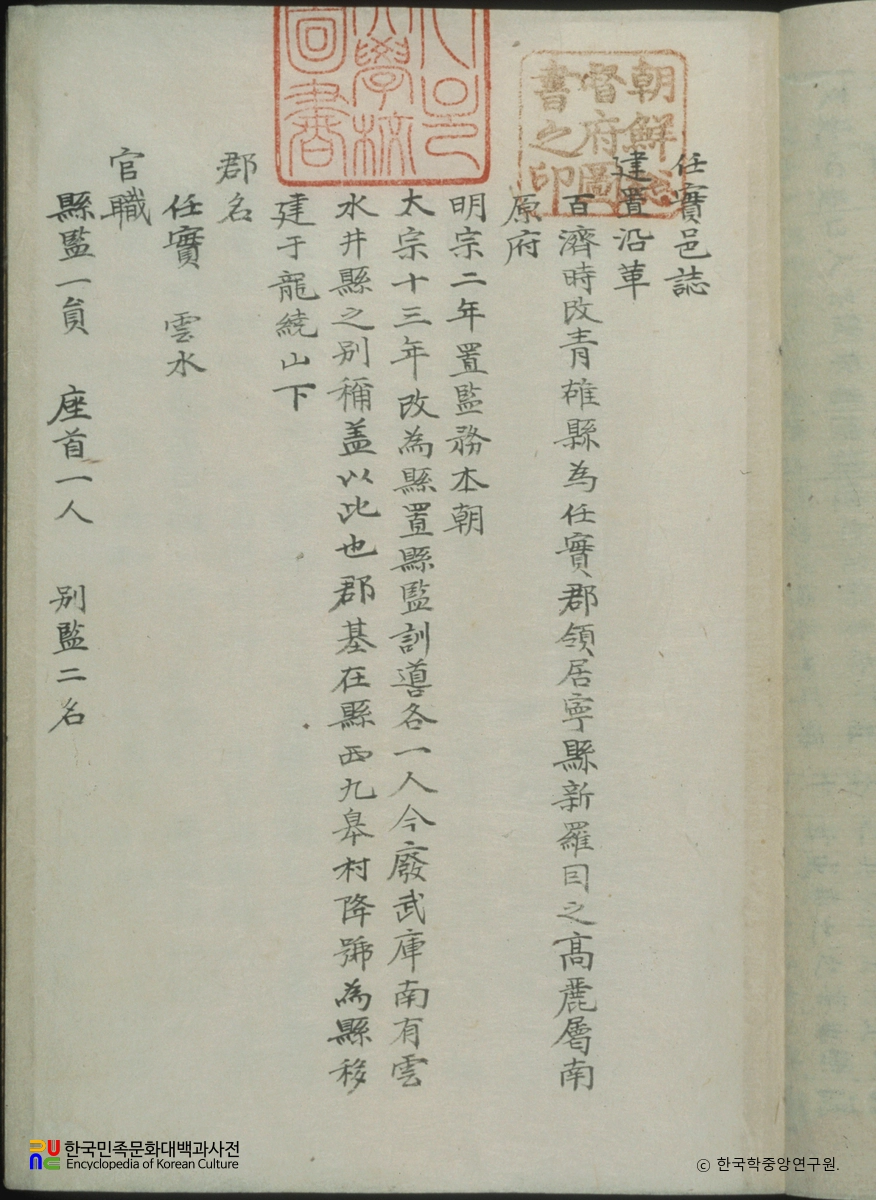 任實邑誌
建置沿革
百濟時改青雄縣為任實郡領居寧縣新羅因之髙麗屬南
原府
明宗二年置監務本朝
太宗十三年改為縣置縣監訓導各一人今廢武庫南有雲
水井縣之別稱盖以此也郡基在縣西九皋村降號為縣移
建于龍繞山下
郡名
任實 雲水
官職
縣監一員 座首一人 別監二名
朝鮮總
督府圖
書之印
大學校
圖書
한국민족문화대백과사전
Encyclopedia of Korean Culture
© 한국학중앙연구원.